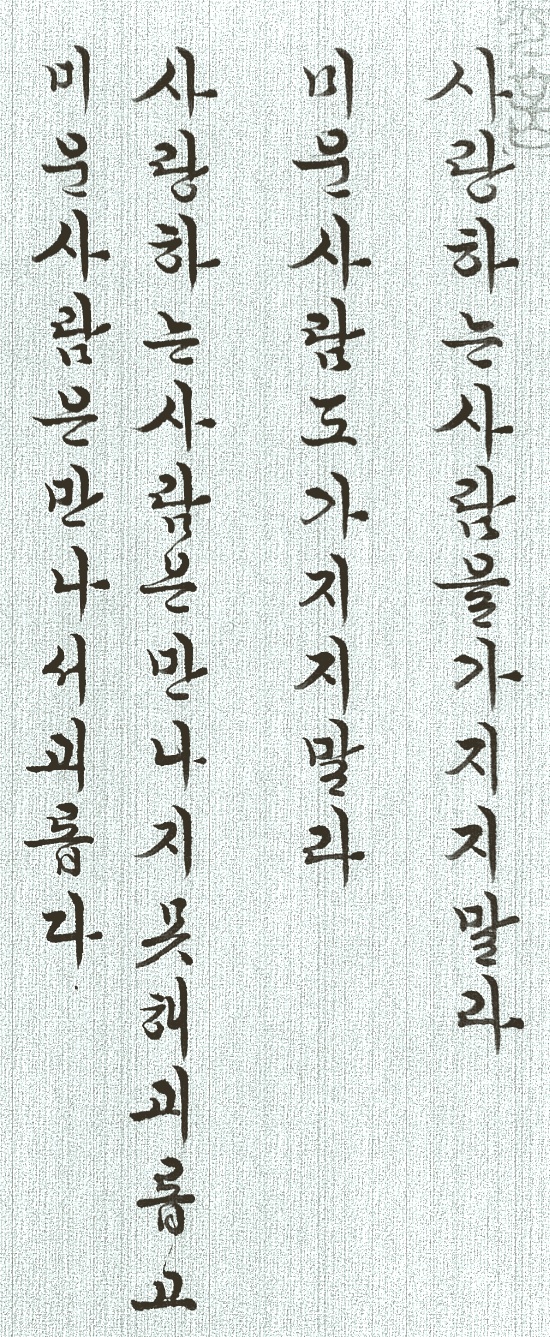 사랑하는사람을가지지말라
미운사람도가지지말라
사랑하는사람은만나지못해괴롭고
미운사람은만나서괴롭다.